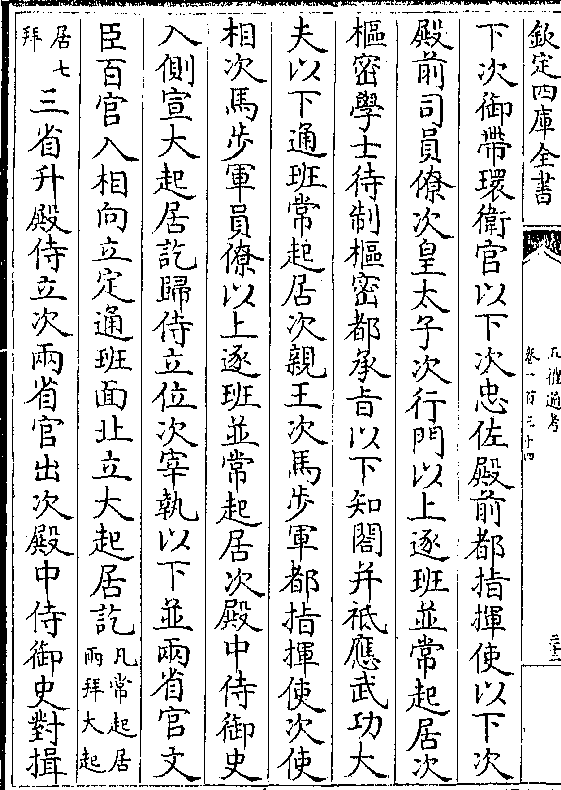 欽定四庫全書
五禮通考
卷一百三十四
三十二
下次御帶環衛官以下次忠佐殿前都指揮使以下次
殿前司員僚次皇太子次行門以上逐班並常起居次
樞密學士待制樞密都承旨以下知閣并祗應武功大
夫以下通班常起居次親王次馬步軍都指揮使次使
相次馬步軍員僚以上逐班並常起居次殿中侍御史
入側宣大起居訖歸侍立位次宰執以下並兩省官文
臣百官入相向立定通班面北立大起居訖凡常起居兩拜大起
居七拜三省升殿侍立次兩省官出次殿中侍御史對揖